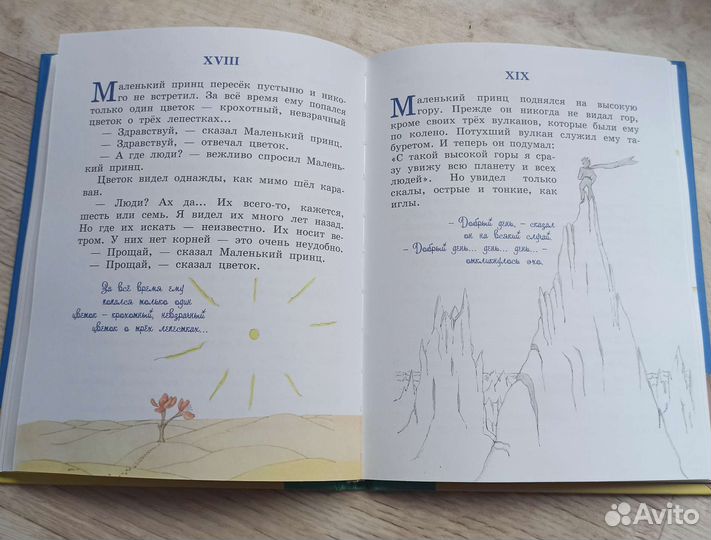 XVIII
Маленький принц пересёк пустыню и нико-
го не встретил. За всё время ему попался
только один цветок — крохотный, невзрачный
цветок о трёх лепестках...
— Здравствуй, — сказал Маленький принц.
— Здравствуй, — отвечал цветок.
— А где люди? — вежливо спросил Малень-
кий принц.
Цветок видел однажды, как мимо шёл кара-
ван.
— Люди? Ах да... Их всего-то, кажется,
шесть или семь. Я видел их много лет назад.
Но где их искать — неизвестно. Их носит ве-
тром. У них нет корней — это очень неудобно.
— Прощай, — сказал Маленький принц.
— Прощай, — сказал цветок.
За всё время ему
попался только один
цветок - крохотный, невзрачный
цветок о трёх лепестках...
XIX
Маленький принц поднялся на высокую
гору. Прежде он никогда не видал гор,
кроме своих трёх вулканов, которые были ему
по колено. Потухший вулкан служил ему та-
буретом. И теперь он подумал:
«С такой высокой горы я сра-
зу увижу всю планету и всех
людей». Но увидел только
скалы, острые и тонкие, как
иглы.
- Добрый день, - сказал
он на всякий случай.
- Добрый день... день... день... -
откликнулось эхо.
Avito